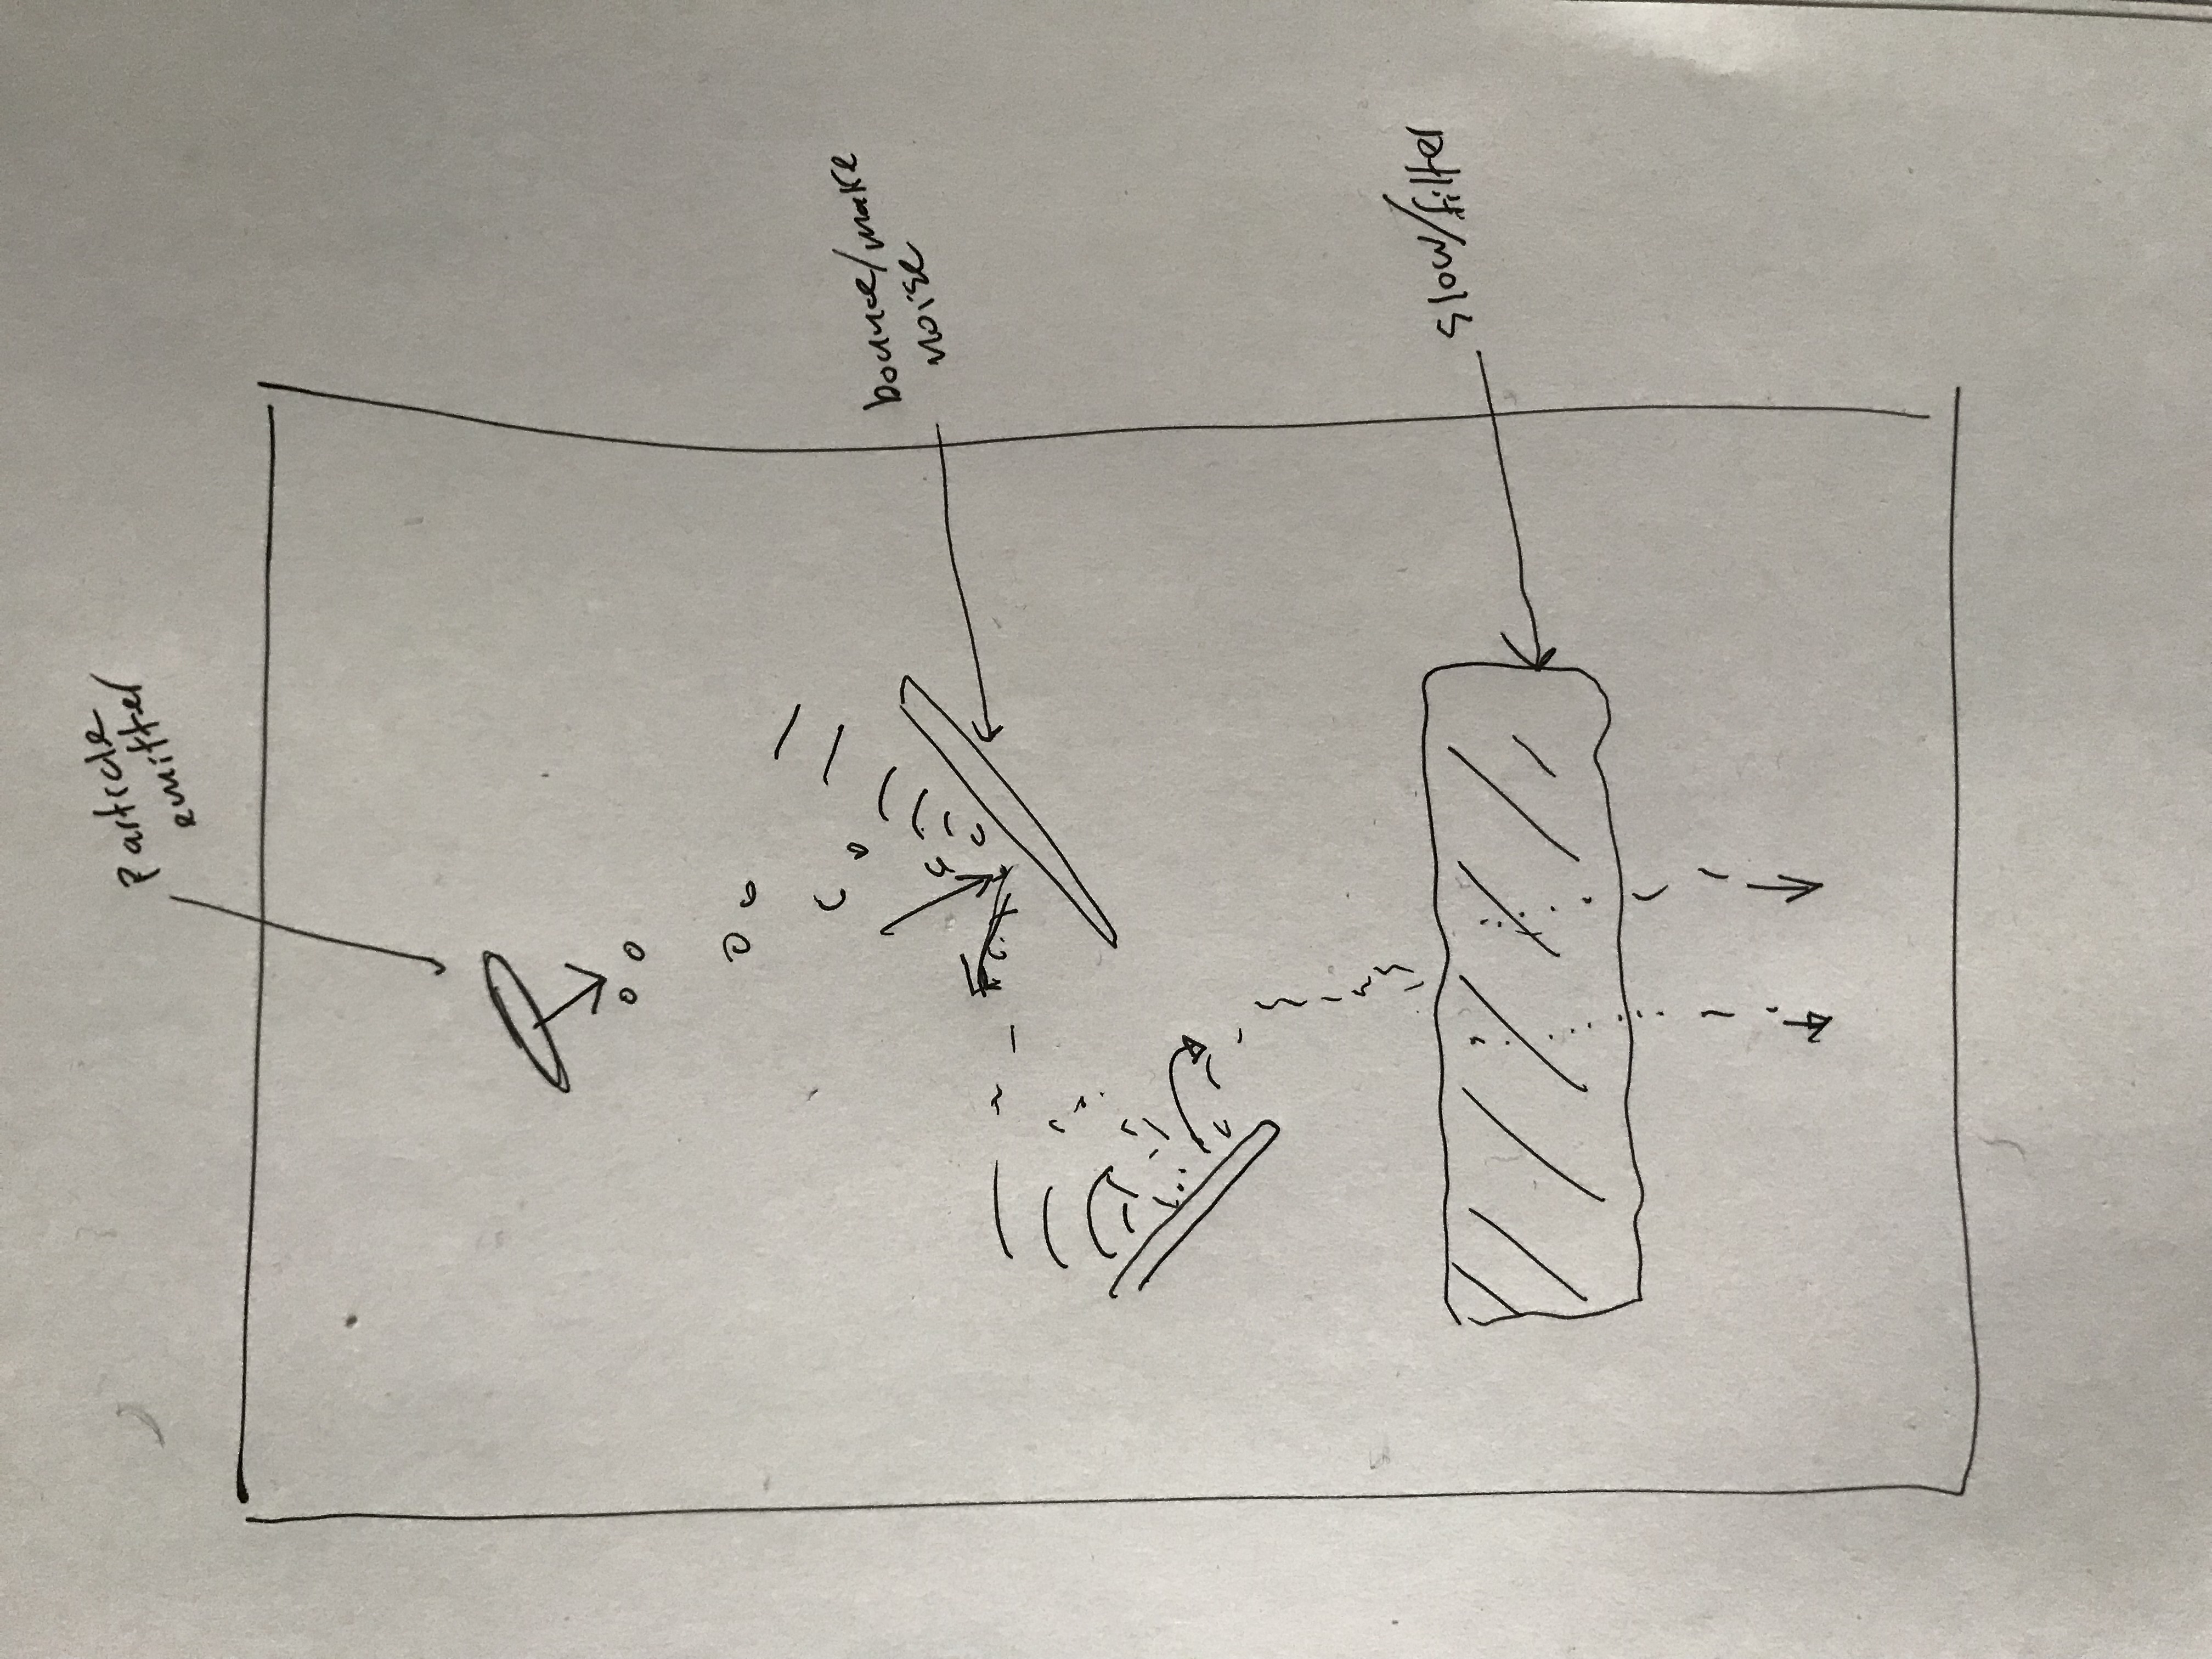 Particle
emitter
bounce/make
noise
slow/filter